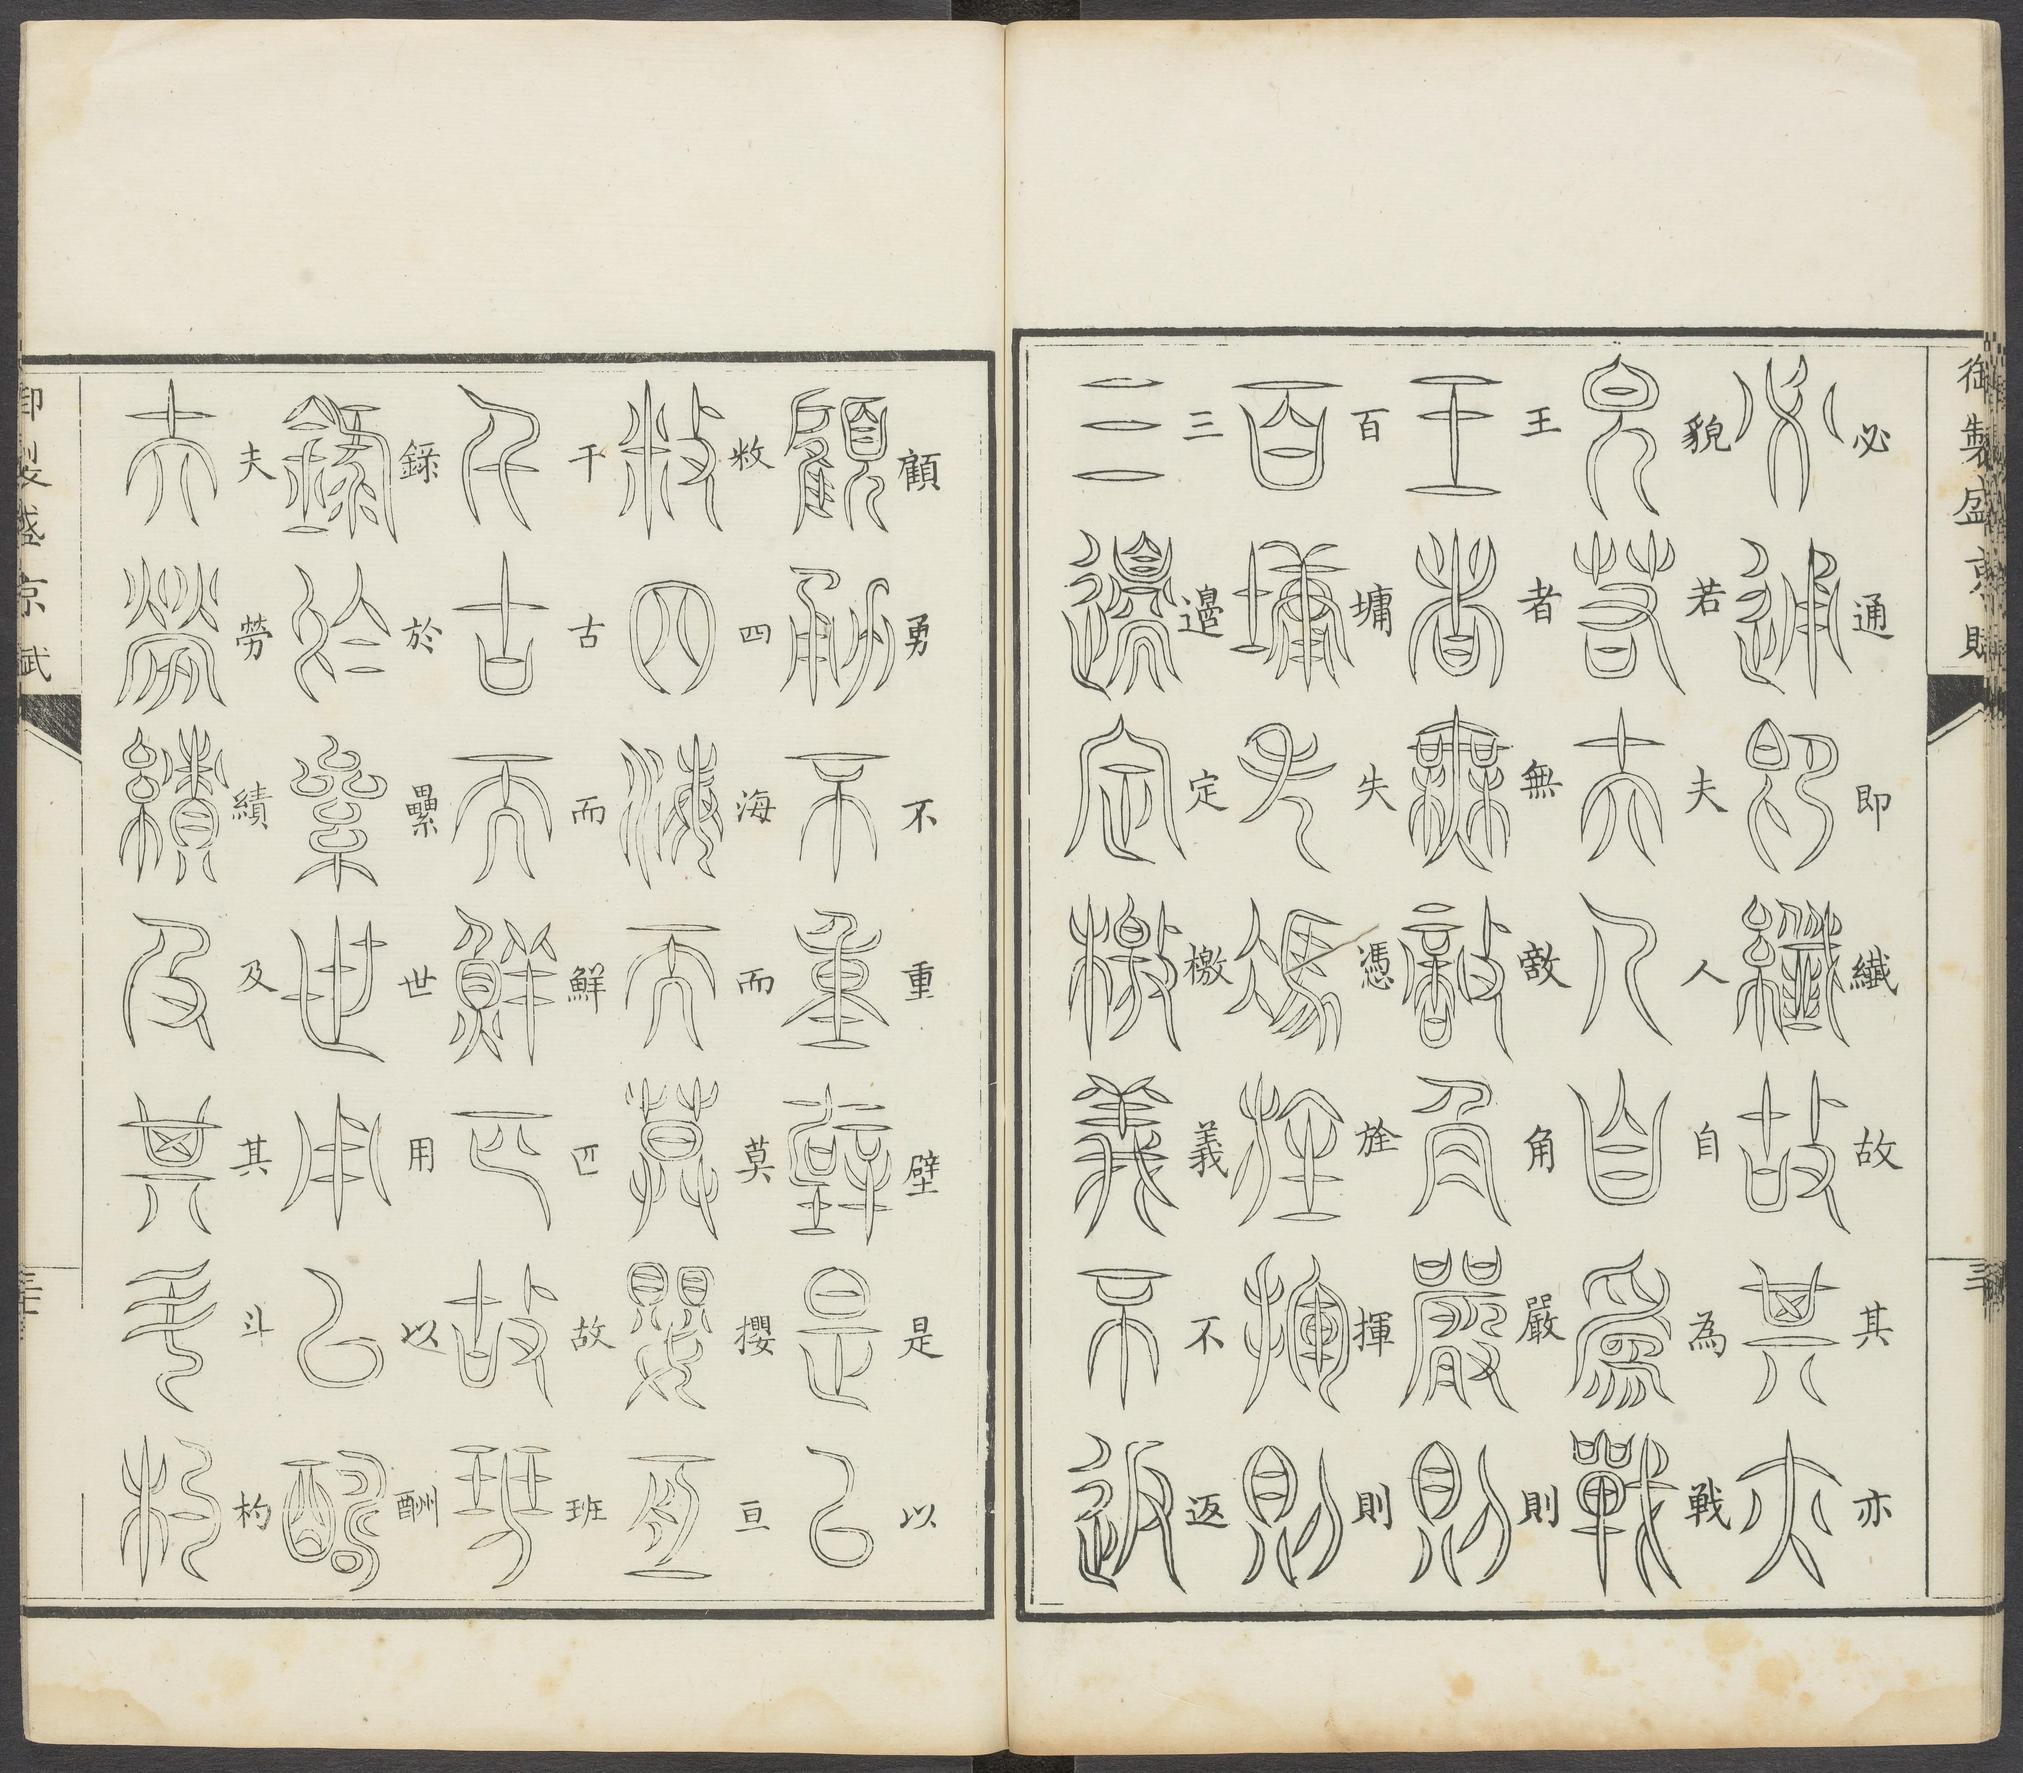 御製盛京賦
必通即纖故其亦
貌若夫人自為戰
王者無敵角嚴則
百墉失憑旌揮則
三邊定檄義不返
顧勇不重壁是以
敉四海而莫攖亘
千古而鮮匹故班
錄於纍世用以酬
夫勞績及其斗杓
御製盛京賦